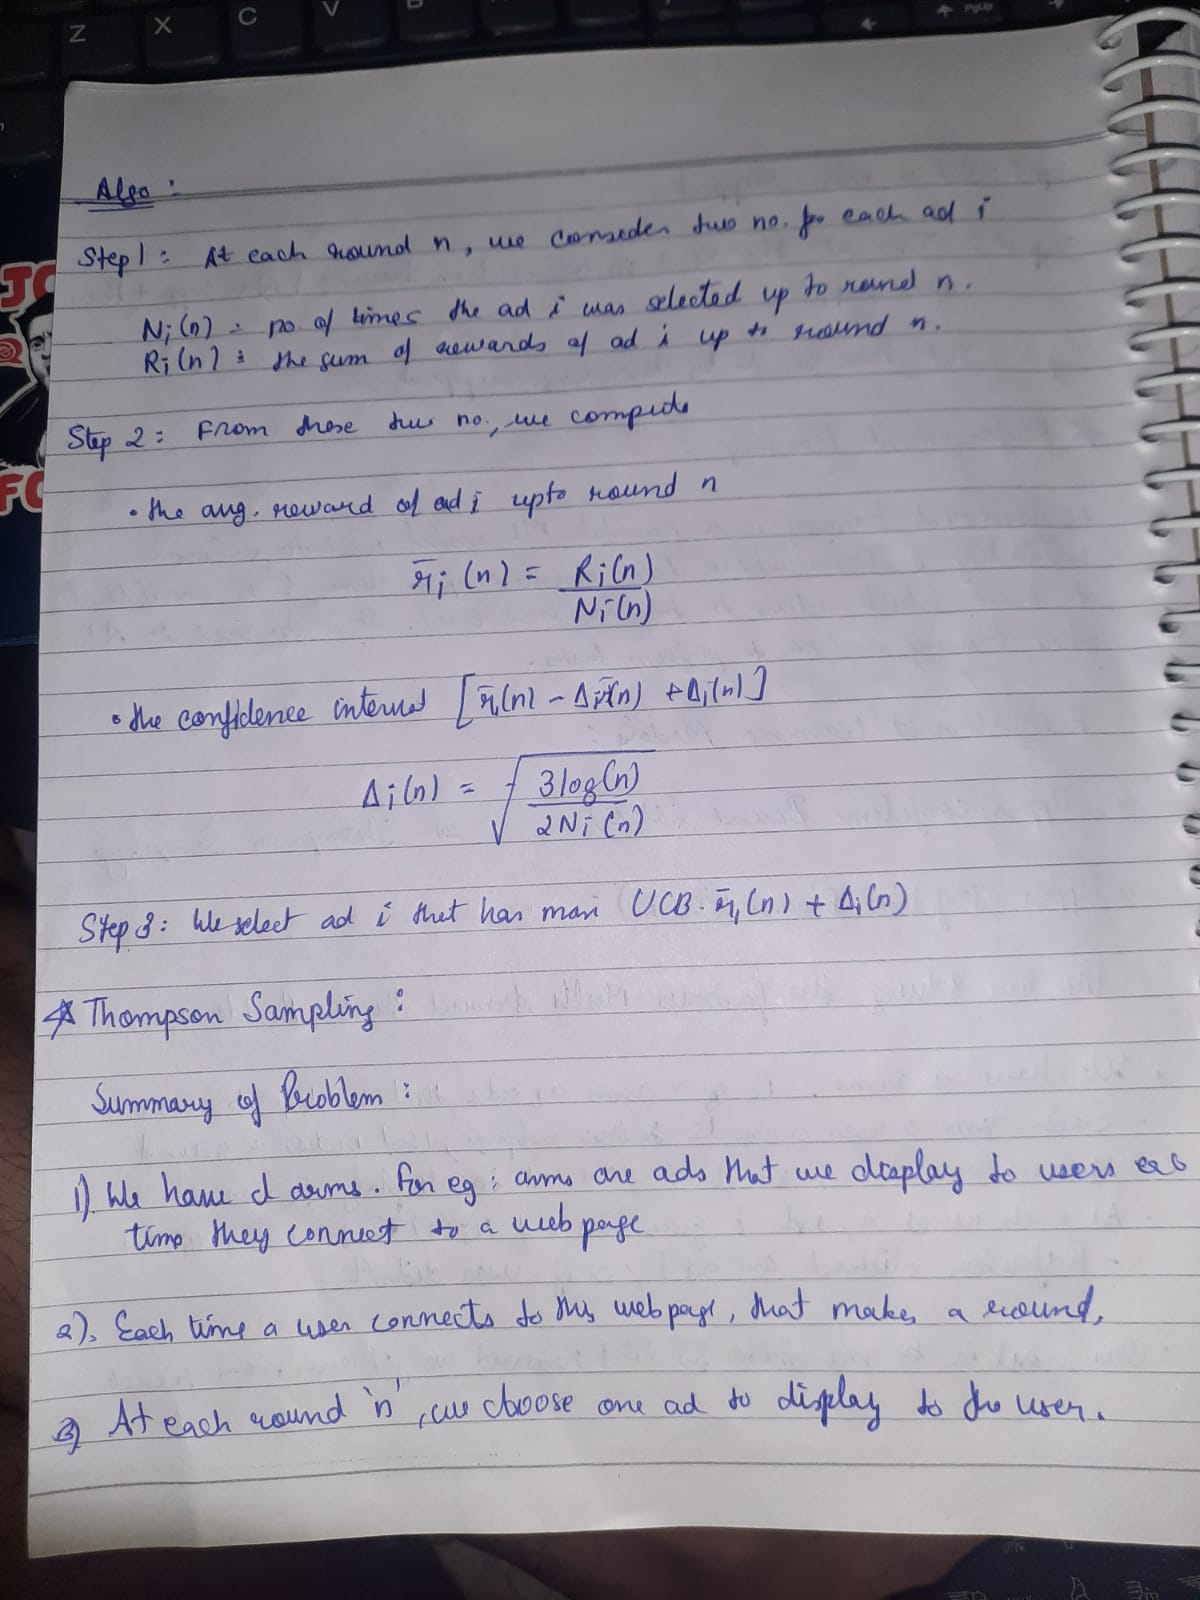 Z X C V B PgUp
Algo :
Step 1 : At each round n, we consider two no. for each ad i
Ni(n) = no. of times the ad i was selected up to round n.
Ri(n) = the sum of rewards of ad i up to round n.
JO
Step 2 : From these two no., we compute
FO
• the avg. reward of ad i upto round n
r̄i (n) = Ri(n) / Ni(n)
• the confidence interval [r̄i(n) - Δi(n) + Δi(n)]
Δi(n) = √(3log(n) / 2Ni(n))
Step 3 : We select ad i that has max UCB. r̄i(n) + Δi(n)
Thompson Sampling :
Summary of Problem :
1) We have d arms. For eg : arms are ads that we display to users
time they connect to a web page
2). Each time a user connects to this web page, that makes a round.
3) At each round 'n', we choose one ad to display to the user.